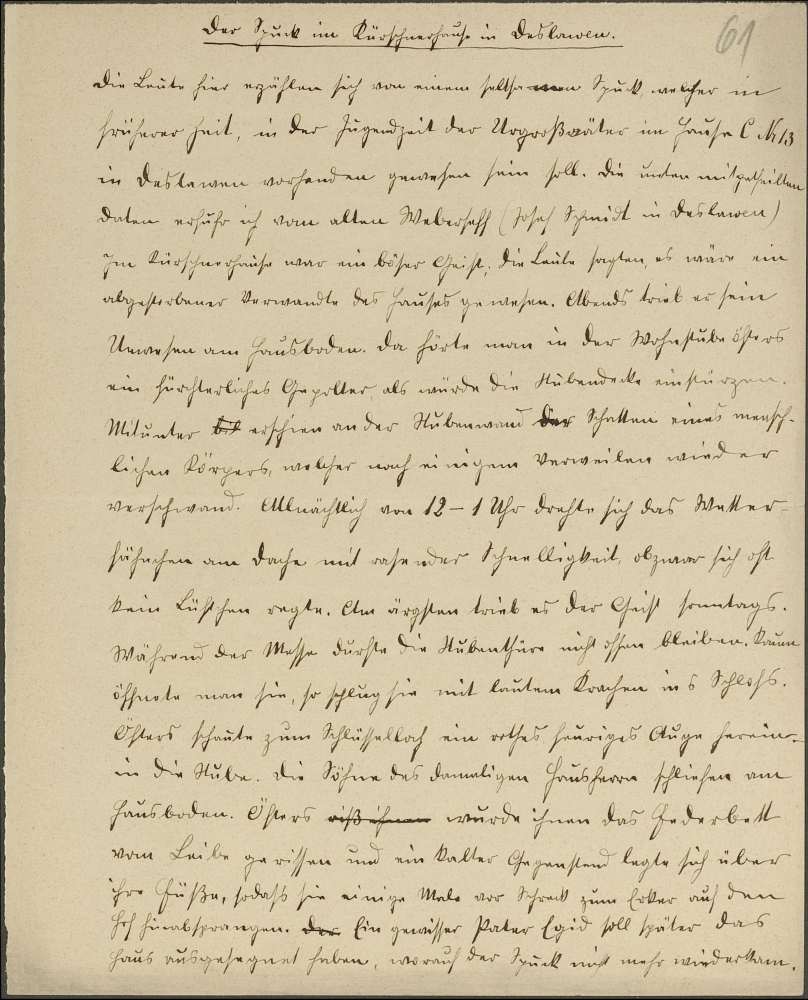 61
Der Spuck im Kürschnerhause in Deslawen.
Die Leute hier erzählen sich von einem seltsamen Spuck, welcher in
früherer Zeit, in der Jugendzeit der Urgroßväter im Hause C. Nr 13
in Deslawen vorhanden gewesen sein soll. Die unten mitgetheilten
Daten erfuhr ich vom alten Weberseff (Josef Schmidt in Deslawen)
Im Kürschnerhause war ein böser Geist; die Leute sagten, es wäre ein
abgestorbener Verwandte des Hauses gewesen. Abends trieb er sein
Unwesen am Hausboden. Da hörte man in der Wohnstube öfters
ein fürchterliches Gepolter, als würde die Stubendecke einstürzen.
Mitunter erschien an der Stubenwand der Schatten eines mensch-
lichen Körpers, welcher nach einigem Verweilen wieder
verschwand. Allnächtlich von 12 – 1 Uhr drehte sich das Wetter-
hähnchen am Dache mit rasender Schnelligkeit, obzwar sich oft
kein Lüftchen regte. Am ärgsten trieb es der Geist sonntags.
Während der Messe durfte die Stubenthüre nicht offen bleiben. Kaum
öffnete man sie, so schlug sie mit lautem Krachen ins Schloß.
Öfters schaute zum Schlüsselloch ein rothes feuriges Auge herein
in die Stube. Die Söhne des damaligen Hausherrn schliefen am
Hausboden. Öfters riß ihnen wurde ihnen das Federbett
vom Leibe gerissen und ein kalter Gegenstand legte sich über
ihre Füße, sodaß sie einige Male vor Schreck zum Erker auf den
Hof hinabsprangen. Der Ein gewisser Pater Egid soll später das
Haus ausgesegnet haben, worauf der Spuck nicht mehr wiederkam.